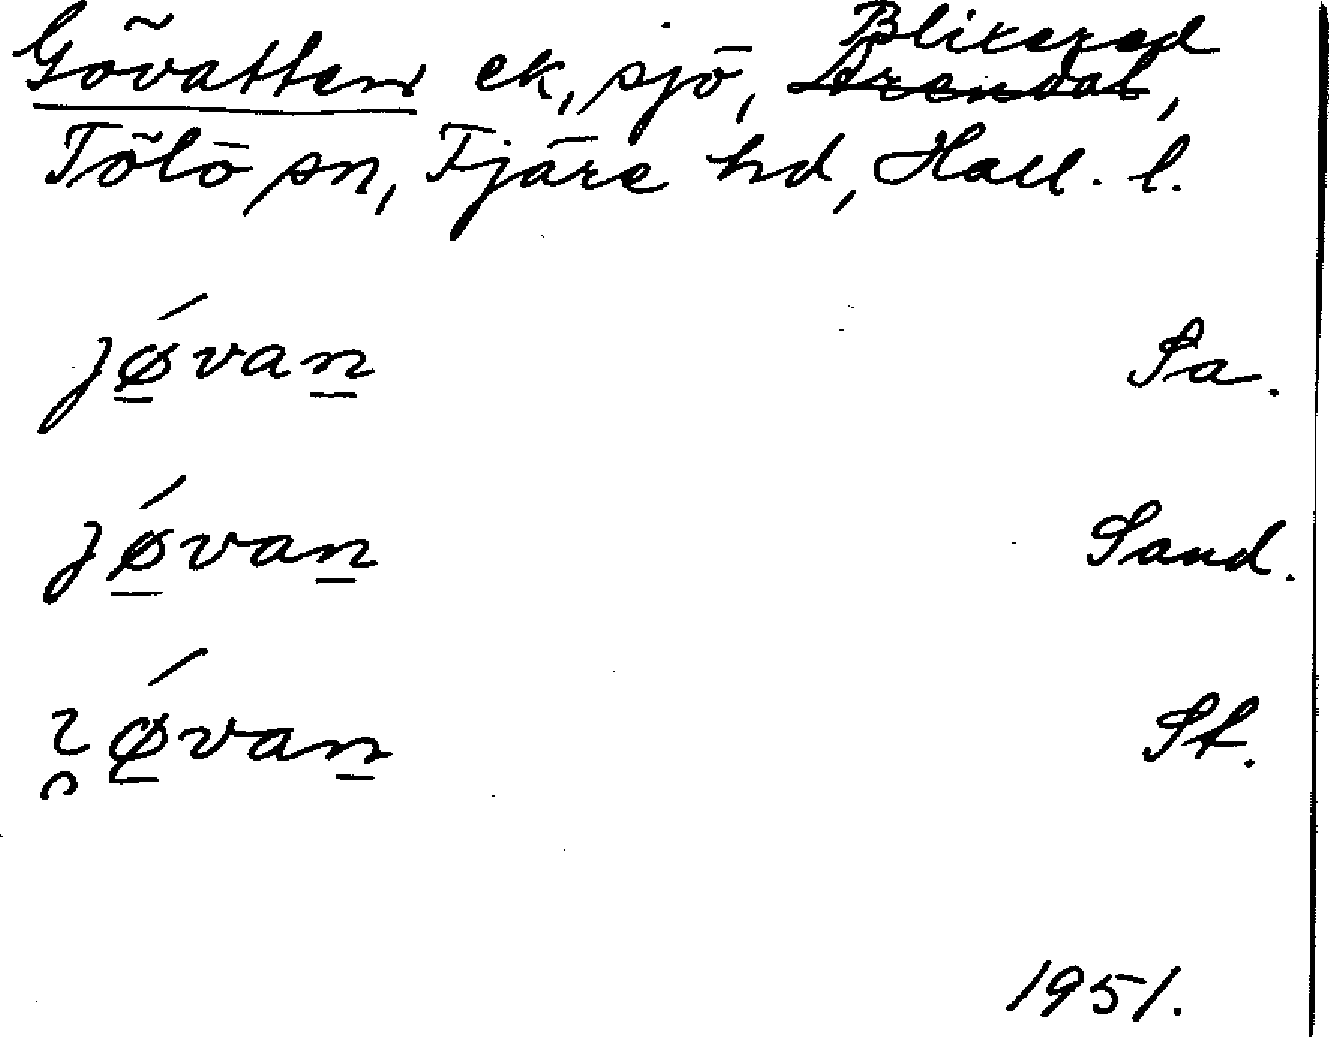 Gövatten ek, sjö, Blixered ~~Arendal~~,
Tölö sn, Fjäre hd, Hall. l.
jǿ̲van̲ Sa.
jǿ̲van̲ Sand.
ǿ̲van̲ St.
1951.